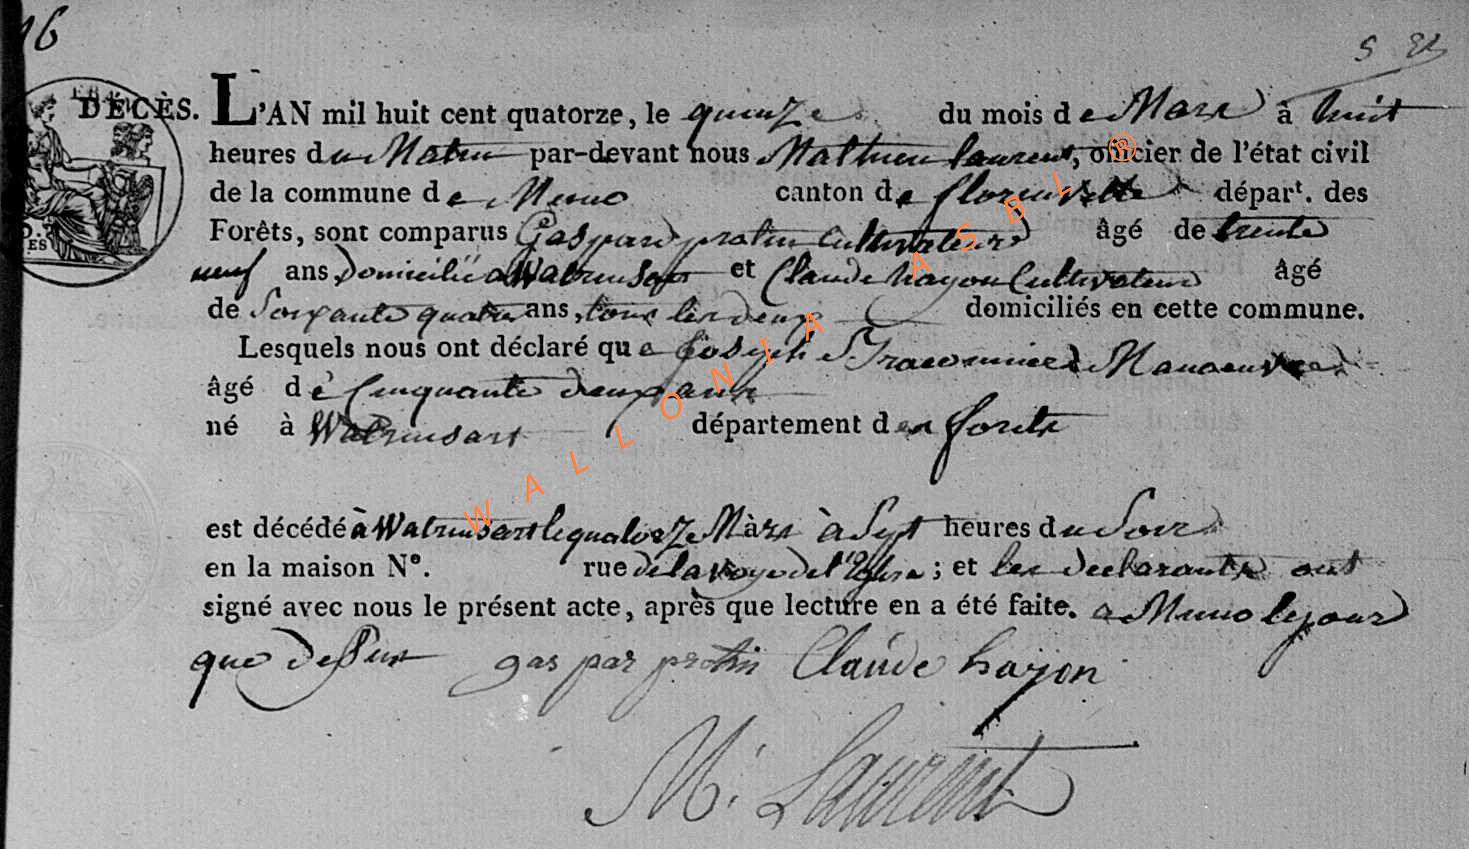 16
5 
DÉCÈS. L'AN mil huit cent quatorze, le quinze du mois de Mars à huit
heures du Matin par-devant nous Mathieu laurent, officier de l'état civil
de la commune de Muno canton de florenville dépar<sup>t</sup>. des
Forêts, sont comparus Gaspard protin Cultivateur âgé de trente
neuf ans Domicilié a Watrinsart et Claude hayon Cultivateur âgé
de Soixante quatre ans, tous les deux domiciliés en cette commune.
Lesquels nous ont déclaré que Joseph Manoeuvre
âgé dé Cinquante deux ans
né à Watrinsart département des forêts
est décédé à Watrinsart le quatorze Mars à Sept heures du Soir
en la maison N°. rue de la voye de l'Eglise ; et les declarants ont
signé avec nous le présent acte, après que lecture en a été faite. a Muno le jour
que dessus gaspar protin Claude hayon
M. Laurent
WALLONIA ASBL ®